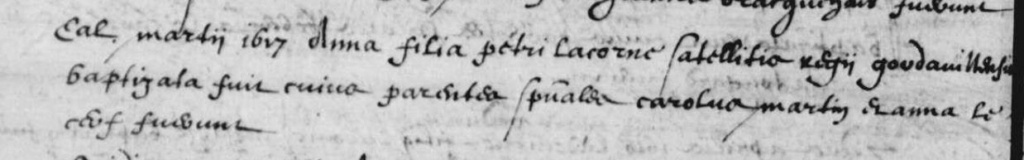 fuerunt
Cal. martii 1617 Anna filia petri Lacorne satellitis regii gordavillensis
baptizata fuit cuius parentes spūales carolus martin et anna le
cerf fuerunt